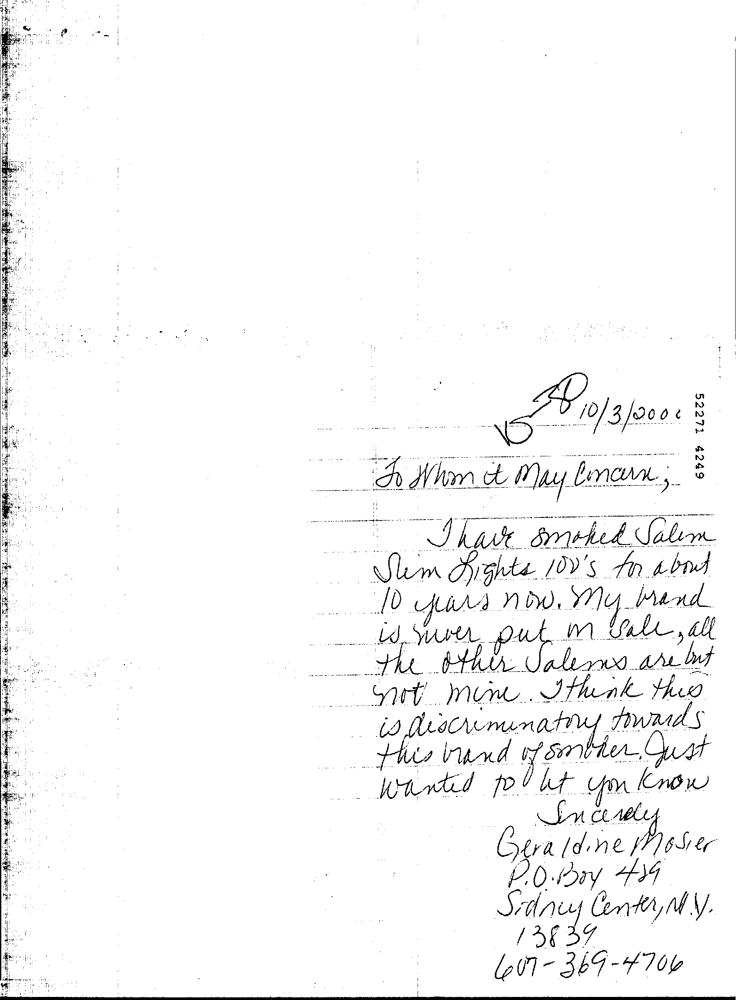 10/3/200
52271 4249
To Whom it May Concern,
I have smoked Salem
Slim Lights 100's for about
10 years now. My brand
is never put on sale, all
the other Salems are but
not mine. I think this
is discriminatory towards
this brand of smoker. Just
wanted to let you know
Sincerely
Geraldine Mosier
P.O. Box
Sidney Center, N.Y.
13839
607-369-4706